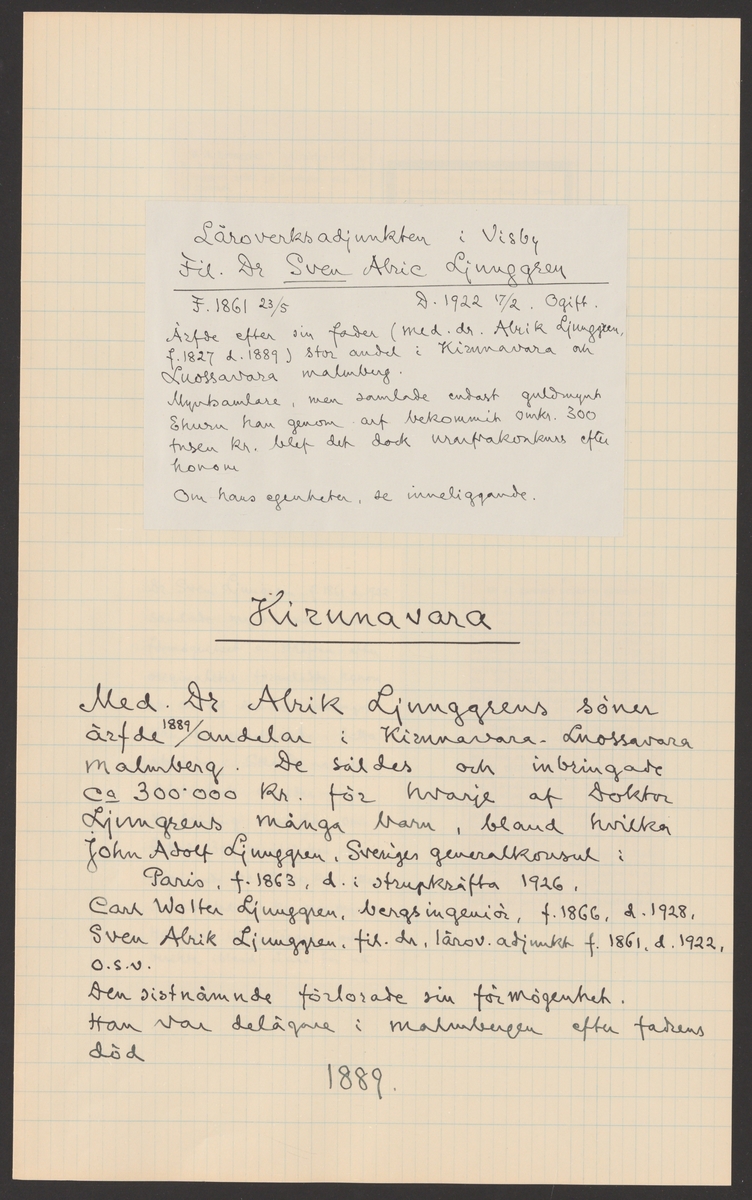 Läroverksadjunkten i Visby
Fil. Dr Sven Alric Ljunggren
F. 1861 23/5 D. 1922 17/2. Ogift.
Ärfde efter sin fader (med. dr. Alrik Ljunggren,
f. 1827 d. 1889) stor andel i Kirunavara och
Luossavara malmberg.
Myntsamlare, men samlade endast guldmynt
Ehuru han genom arf bekommit omkr. 300
tusen kr. blef det dock urarfvakonkurs efter
honom
Om hans egenheter, se inneliggande.
Kirunavara
Med. Dr Alrik Ljunggrens söner
ärfde 1889/ andelar i Kirunavara-Luossavara
malmberg. De såldes och inbringade
ca 300.000 Kr. för hvarje af Doktor
Ljungrens många barn, bland hvilka
John Adolf Ljunggren, Sveriges generalkonsul i
Paris, f. 1863, d. i strupkräfta 1926,
Carl Wolter Ljunggren, bergsingeniör, f. 1866, d. 1928,
Sven Alrik Ljunggren, fil. dr, lärov. adjunkt f. 1861, d. 1922,
o.s.v.
Den sistnämnde förlorade sin förmögenhet.
Han var delägare i malmbergen efter fadrens
död
1889.